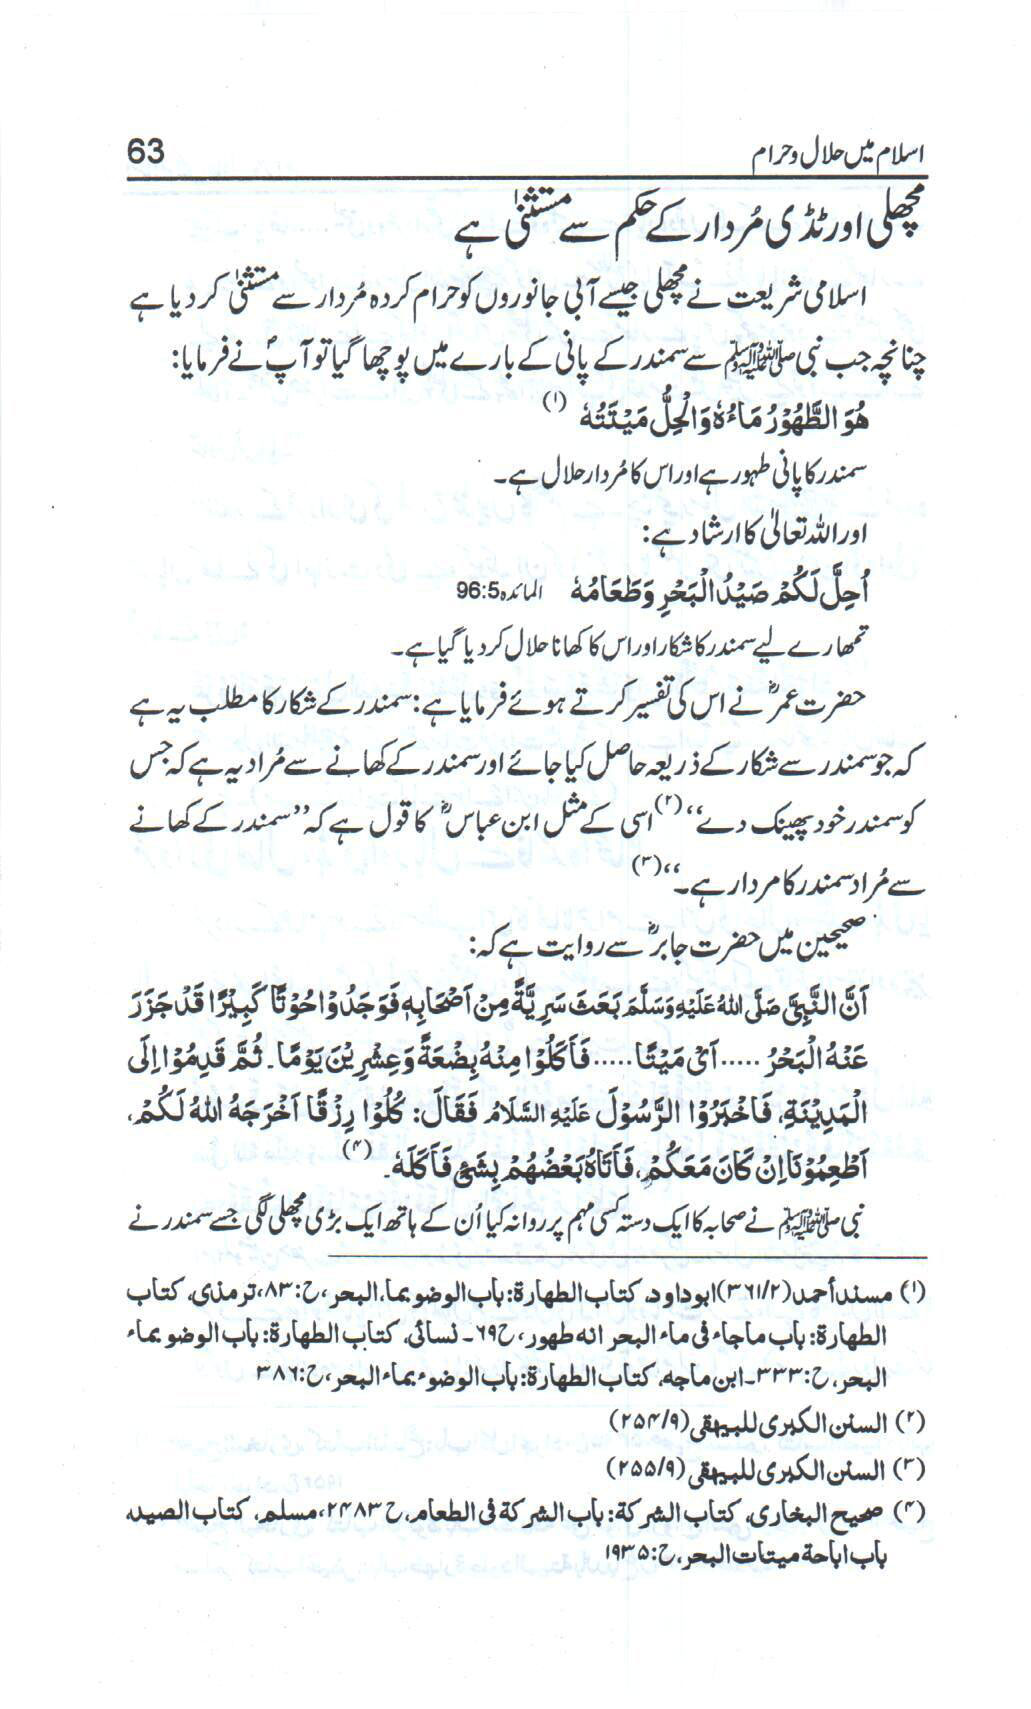 اسلام میں حلال و حرام 63
مچھلی اور ٹڈی مُردار کے حکم سے مستثنیٰ ہے
اسلامی شریعت نے مچھلی جیسے آبی جانوروں کو حرام کردہ مُردار سے مستثنیٰ کر دیا ہے
چنانچہ جب نبی ﷺ سے سمندر کے پانی کے بارے میں پوچھا گیا تو آپؐ نے فرمایا:
هُوَ الطَّهُوْرُ مَاءُهٗ وَالْحِلُّ مَيْتَتُهٗ (۱)
سمندر کا پانی طہور ہے اور اس کا مُردار حلال ہے۔
اور اللہ تعالیٰ کا ارشاد ہے:
اُحِلَّ لَكُمْ صَيْدُ الْبَحْرِ وَطَعَامُهٗ المائدہ 96:5
تمہارے لیے سمندر کا شکار اور اس کا کھانا حلال کر دیا گیا ہے۔
حضرت عمرؓ نے اس کی تفسیر کرتے ہوئے فرمایا ہے: سمندر کے شکار کا مطلب یہ ہے
کہ جو سمندر سے شکار کے ذریعہ حاصل کیا جائے اور سمندر کے کھانے سے مُراد یہ ہے کہ جس
کو سمندر خود پھینک دے‘‘(۲) اسی کے مثل ابن عباسؓ کا قول ہے کہ ’’سمندر کے کھانے
سے مُراد سمندر کا مردار ہے۔‘‘(۳)
صحیحین میں حضرت جابرؓ سے روایت ہے کہ:
اَنَّ النَّبِيَّ صَلَّى اللهُ عَلَيْهِ وَسَلَّمَ بَعَثَ سَرِيَّةً مِنْ اَصْحَابِهٖ فَوَجَدُوْا حُوْتًا كَبِيْرًا قَدْ جَزَرَ
عَنْهُ الْبَحْرُ ..... اَىْ مَيْتًا ..... فَاَكَلُوْا مِنْهُ بِضْعَةً وَعِشْرِيْنَ يَوْمًا۔ ثُمَّ قَدِمُوْا اِلَى
الْمَدِيْنَةِ، فَاَخْبَرُوْا الرَّسُوْلَ عَلَيْهِ السَّلَامُ فَقَالَ: كُلُوْا رِزْقًا اَخْرَجَهُ اللهُ لَكُمْ،
اَطْعِمُوْنَا اِنْ كَانَ مَعَكُمْ، فَاَتَاهُ بَعْضُهُمْ بِشَيْءٍ فَاَكَلَهٗ۔(۴)
نبی ﷺ نے صحابہ کا ایک دستہ کسی مہم پر روانہ کیا اُن کے ہاتھ ایک بڑی مچھلی لگی جسے سمندر نے
(۱) مسند أحمد (۳۶۱/۲) ابوداود، کتاب الطهارة: باب الوضو بما، البحر، ح: ۸۳، ترمذی، کتاب
الطهارة: باب ماجاء فی ماء البحر انه طهور، ح ۶۹۔ نسائی، کتاب الطهارة: باب الوضو بماء
البحر، ح: ۳۳۳۔ ابن ماجه، کتاب الطهارة: باب الوضوء بماء البحر، ح: ۳۸۶
(۲) السنن الکبری للبیهقی (۲۵۴/۹)
(۳) السنن الکبری للبیهقی (۲۵۵/۹)
(۴) صحیح البخاری، کتاب الشرکة: باب الشرکة فی الطعام، ح ۲۴۸۳، مسلم، کتاب الصید،
باب اباحة میتات البحر، ح: ۱۹۳۵